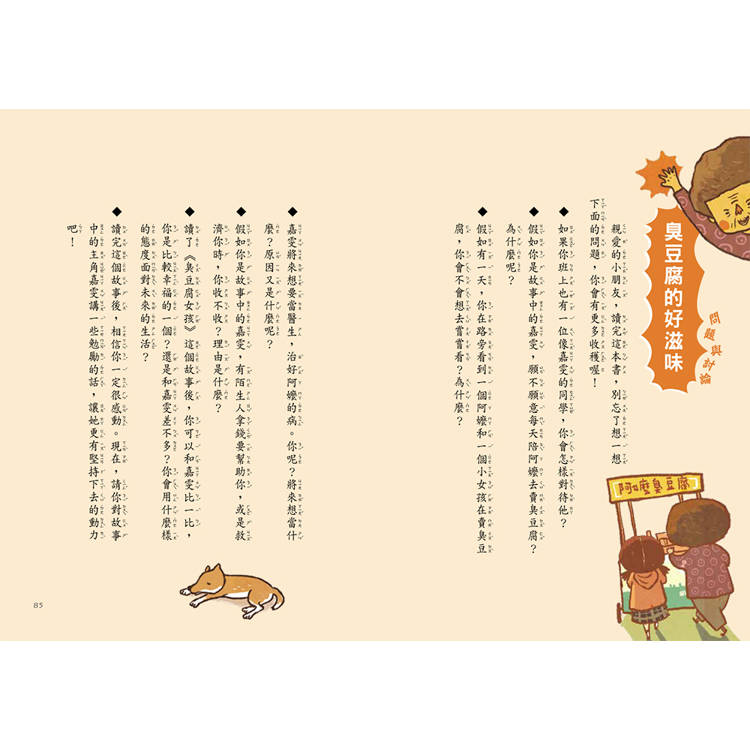 問題與討論
臭豆腐的好滋味
親愛的小朋友，讀完這本書，別忘了想一想
下面的問題，你會有更多收穫喔！
◆如果你班上也有一位像嘉雯的同學，你會怎樣對待他？
◆假如你是故事中的嘉雯，願不願意每天陪阿嬤去賣臭豆腐？
為什麼呢？
◆假如有一天，你在路旁看到一個阿嬤和一個小女孩在賣臭豆
腐，你會不會想去嘗嘗看？為什麼？
阿嬤臭豆腐
◆嘉雯將來想要當醫生，治好阿嬤的病。你呢？將來想當什
麼？原因又是什麼呢？
◆假如你是故事中的嘉雯，有陌生人拿錢要幫助你，或是救
濟你時，你收不收？理由是什麼？
◆讀了《臭豆腐女孩》這個故事後，你可以和嘉雯比一比，
你是比較幸福的一個？還是和嘉雯差不多？你會用什麼樣
的態度面對未來的生活？
◆讀完這個故事後，相信你一定很感動。現在，請你對故事
中的主角嘉雯講一些勉勵的話，讓她更有堅持下去的動力
吧！
85